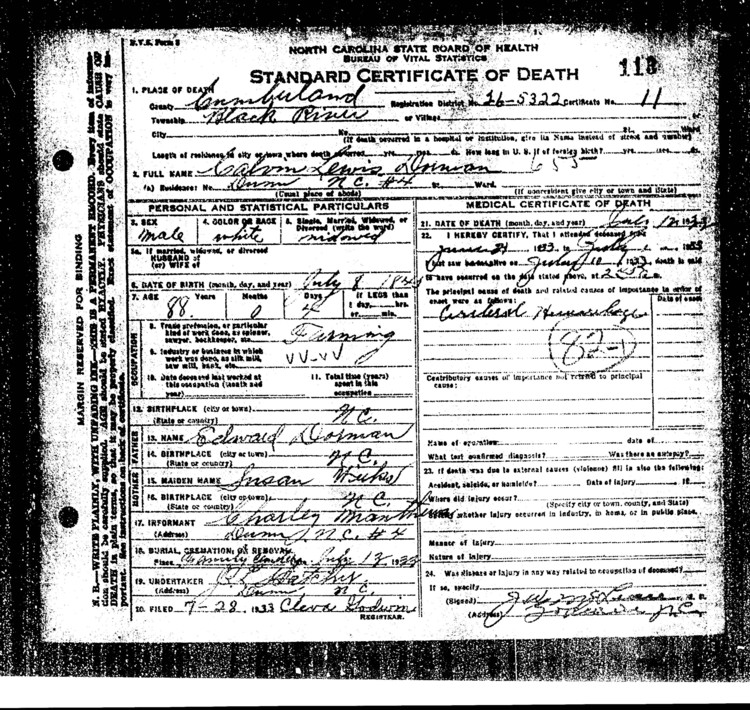 N.V.S. Form 8
NORTH CAROLINA STATE BOARD OF HEALTH
BUREAU OF VITAL STATISTICS
STANDARD CERTIFICATE OF DEATH
113
1. PLACE OF DEATH
County Cumberland Registration District No. 26-5322 Certificate No. 11
Township Black River or Village
City No. St. Ward
(If death occurred in a hospital or institution, give its Name instead of street and number)
Length of residence in city or town where death occurred yrs. mos. ds. How long in U. S. if of foreign birth? yrs. mos. ds.
2. FULL NAME Calvin Lewis Dorman 655
(a) Residence: No. Dunn N.C. #4 St. Ward.
(Usual place of abode) (If nonresident give city or town and State)
PERSONAL AND STATISTICAL PARTICULARS
3. SEX 4. COLOR OR RACE 5. Single, Married, Widowed, or Divorced (write the word)
male white widowed
5a. If married, widowed, or divorced
HUSBAND of
(or) WIFE of
6. DATE OF BIRTH (month, day, and year) July 8
7. AGE Years Months Days If LESS than 1 day, hrs. or min.
88 0 4
OCCUPATION
8. Trade, profession, or particular kind of work done, as spinner, sawyer, bookkeeper, etc. Farming
9. Industry or business in which work was done, as silk mill, saw mill, bank, etc. VV-VV
10. Date deceased last worked at this occupation (month and year)
11. Total time (years) spent in this occupation
12. BIRTHPLACE (city or town)
(State or country) N.C.
FATHER
13. NAME Edward Dorman
14. BIRTHPLACE (city or town)
(State or country) N.C.
MOTHER
15. MAIDEN NAME Susan
16. BIRTHPLACE (city or town)
(State or country) N.C.
17. INFORMANT Charley
(Address) Dunn, N.C. #4
18. BURIAL, CREMATION, OR REMOVAL
Place Family July 13 1933
19. UNDERTAKER
(Address) Dunn N.C.
20. FILED 7-28 1933 Cleva Godwin
REGISTRAR.
MEDICAL CERTIFICATE OF DEATH
21. DATE OF DEATH (month, day, and year) July 12 1933
22. I HEREBY CERTIFY, That I attended deceased from
1933 to July 1933
I last saw alive on July 10, 1933 death is said
to have occurred on the date stated above, at m.
The principal cause of death and related causes of importance in order of onset were as follows:
Date of onset
Cerebral Hemorrhage
82-1
Contributory causes of importance not related to principal cause:
Name of operation date of
What test confirmed diagnosis? Was there an autopsy?
23. If death was due to external causes (violence) fill in also the following:
Accident, suicide, or homicide? Date of injury 19
Where did injury occur?
(Specify city or town, county, and State)
Specify whether injury occurred in industry, in home, or in public place.
Manner of injury
Nature of injury
24. Was disease or injury in any way related to occupation of deceased?
If so, specify
(Signed) M. D.
(Address) N.C.
MARGIN RESERVED FOR BINDING
N. B.—WRITE PLAINLY, WITH UNFADING INK—THIS IS A PERMANENT RECORD. Every item of information should be carefully supplied. AGE should be stated EXACTLY. PHYSICIANS should state CAUSE OF DEATH in plain terms, so that it may be properly classified. Exact statement of OCCUPATION is very important. See instructions on back of certificate.